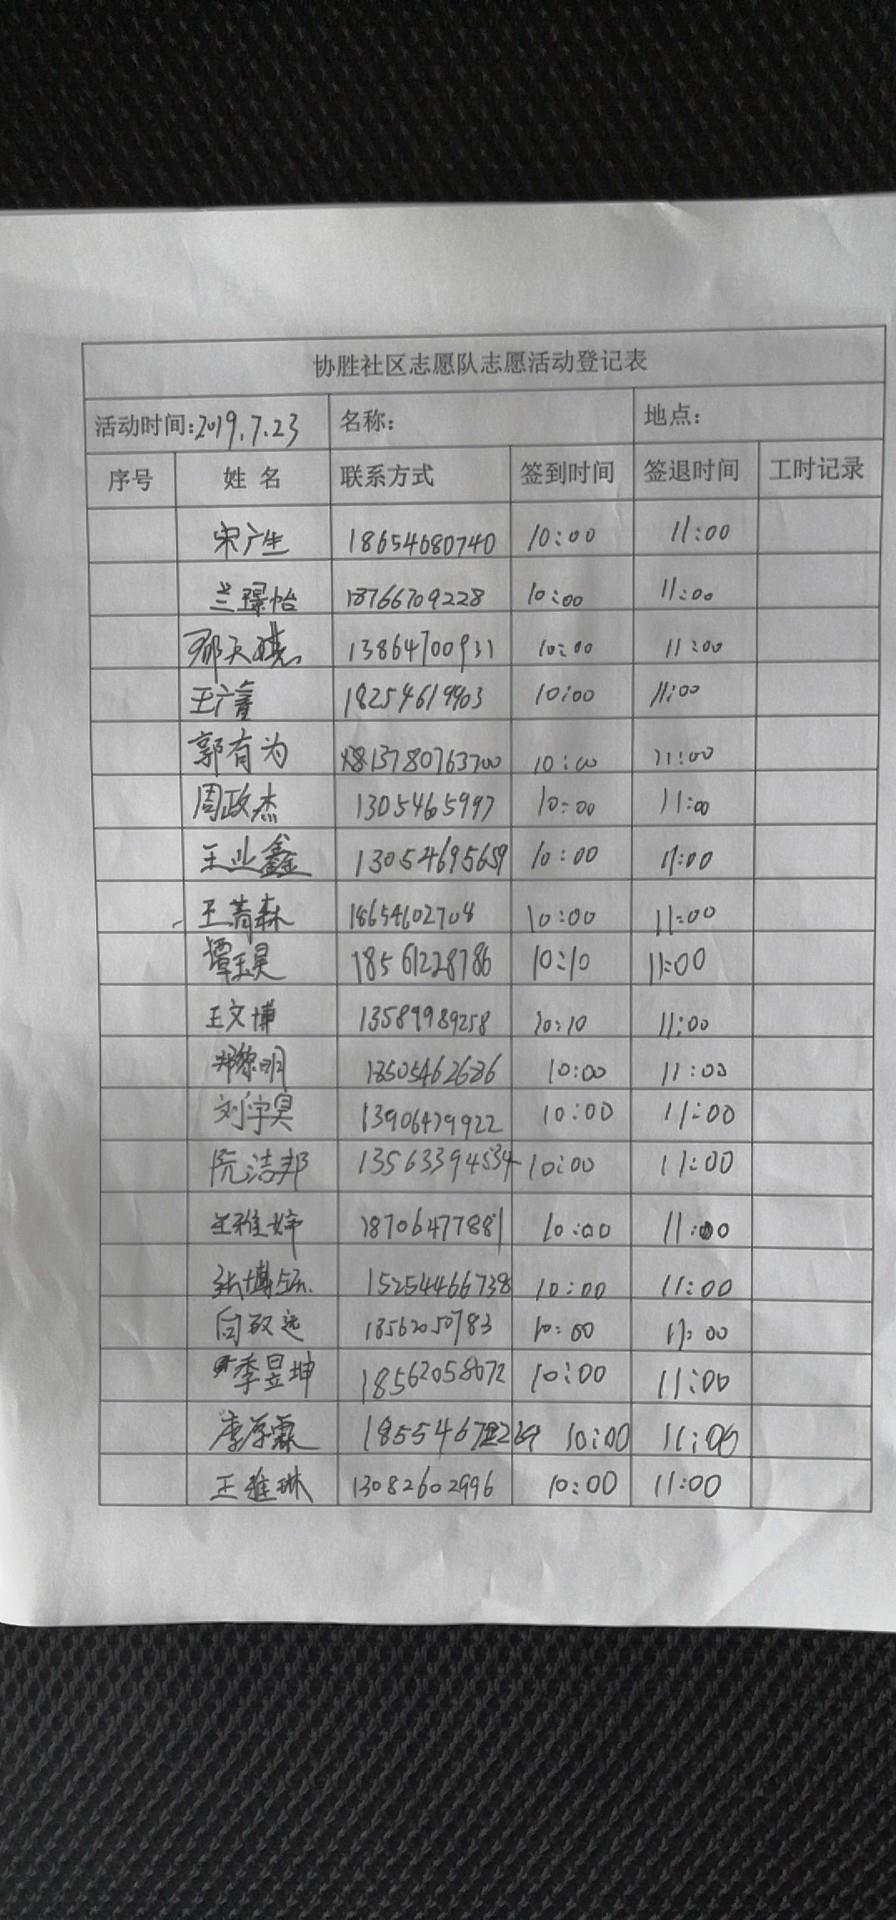 协胜社区志愿队志愿活动登记表
活动时间:2019.7.23 名称: 地点:
序号 姓名 联系方式 签到时间 签退时间 工时记录
宋广生 18654680740 10:00 11:00
兰璟怡 18766709228 10:00 11:00
郁天 13864700931 10:00 11:00
王广 18254619903 10:00 11:00
郭有为 13780763700 10:00 11:00
周政杰 1305465997 10:00 11:00
王业鑫 13054695659 10:00 11:00
王菁森 18654602708 10:00 11:00
谭玉昊 18561228786 10:10 11:00
王文博 13589989258 10:10 11:00
郑黎明 18505462686 10:00 11:00
刘宇昊 13906479922 10:00 11:00
阮洁邦 13563394534 10:00 11:00
王雅婷 18706477881 10:00 11:00
张博 15254466738 10:00 11:00
向致远 18562050783 10:00 11:00
季昱坤 18562058072 10:00 11:00
李厚霖 10:00 11:00
王雅琳 13082602996 10:00 11:00